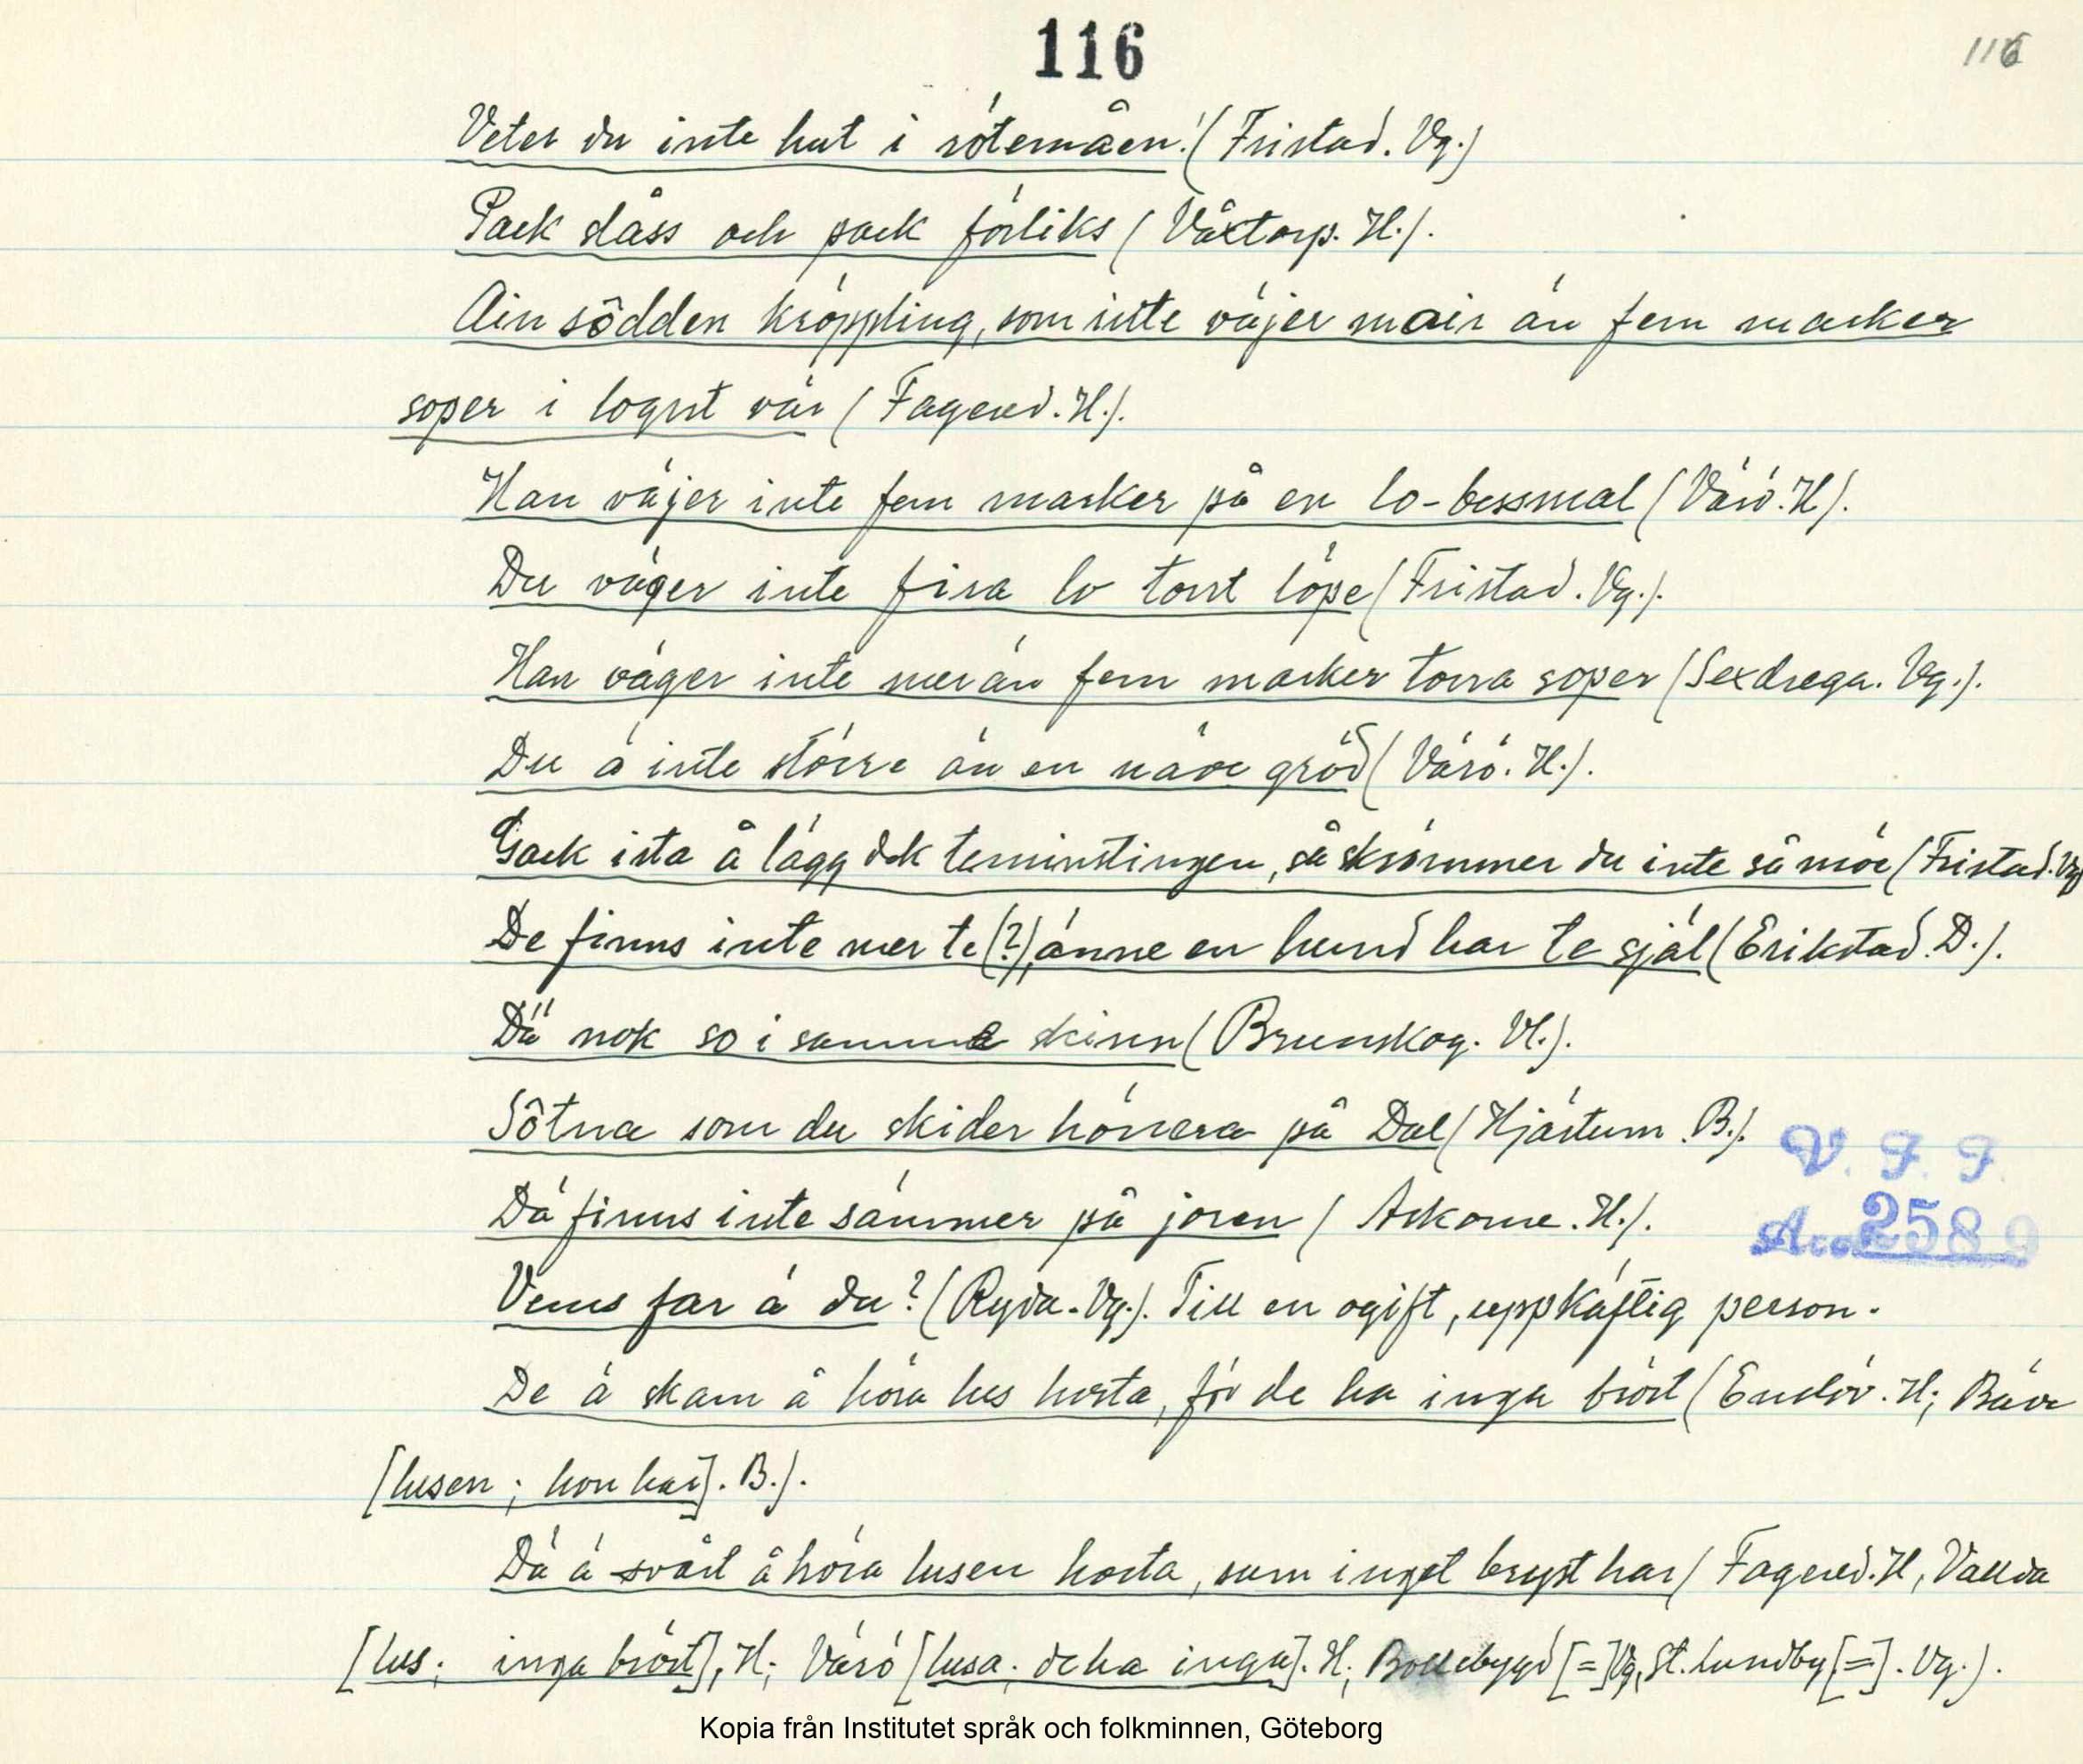 116
116
Vetes du inte hut i rötemåen! (Fristad. Vg.)
Pack slåss och pack förliks (Våxtorp. H.).
Ain södden kröppling, som inte väjer mair än fem marker
soper i lognt vär (Fagered. H.).
Han väjer inte fem marker på en lo-bessmal (Värö. H.).
Du väger inte fira lo torst löpe (Fristad. Vg.).
Han väger inte mer än fem marker torra soper (Sexdrega. Vg.).
Du ä inte större än en näve gröd (Värö. H.).
Gack ista å lägg dek teminstingen, så skrömmer du inte så möe (Fristad. Vg
De finns inte mer te (?), änne en hund har te själ (Erikstad. D.).
Dä nok so i samma skinn (Brunskog. Vl.).
Sötna som du skider hönera på Dal (Hjärtum. B.).
V. F. F.
Dä finns inte sämmer på joren (Askome. H.).
Acc. 2589
Vems far ä du? (Ryda. Vg.). Till en ogift, uppkäftig person.
De ä skam å höra lus hosta, för de ha inga bröst (Enslöv. H; Bäve
[lusen; hon har]. B.).
Dä ä svårt å höra lusen hosta, som inget bryst har (Fagered. H, Vallda
[lus; inga bröst], H; Värö [lusa; de ha inga]. H; Bollebygd [=] Vg, St. Lundby [=]. Vg.).
Kopia från Institutet språk och folkminnen, Göteborg